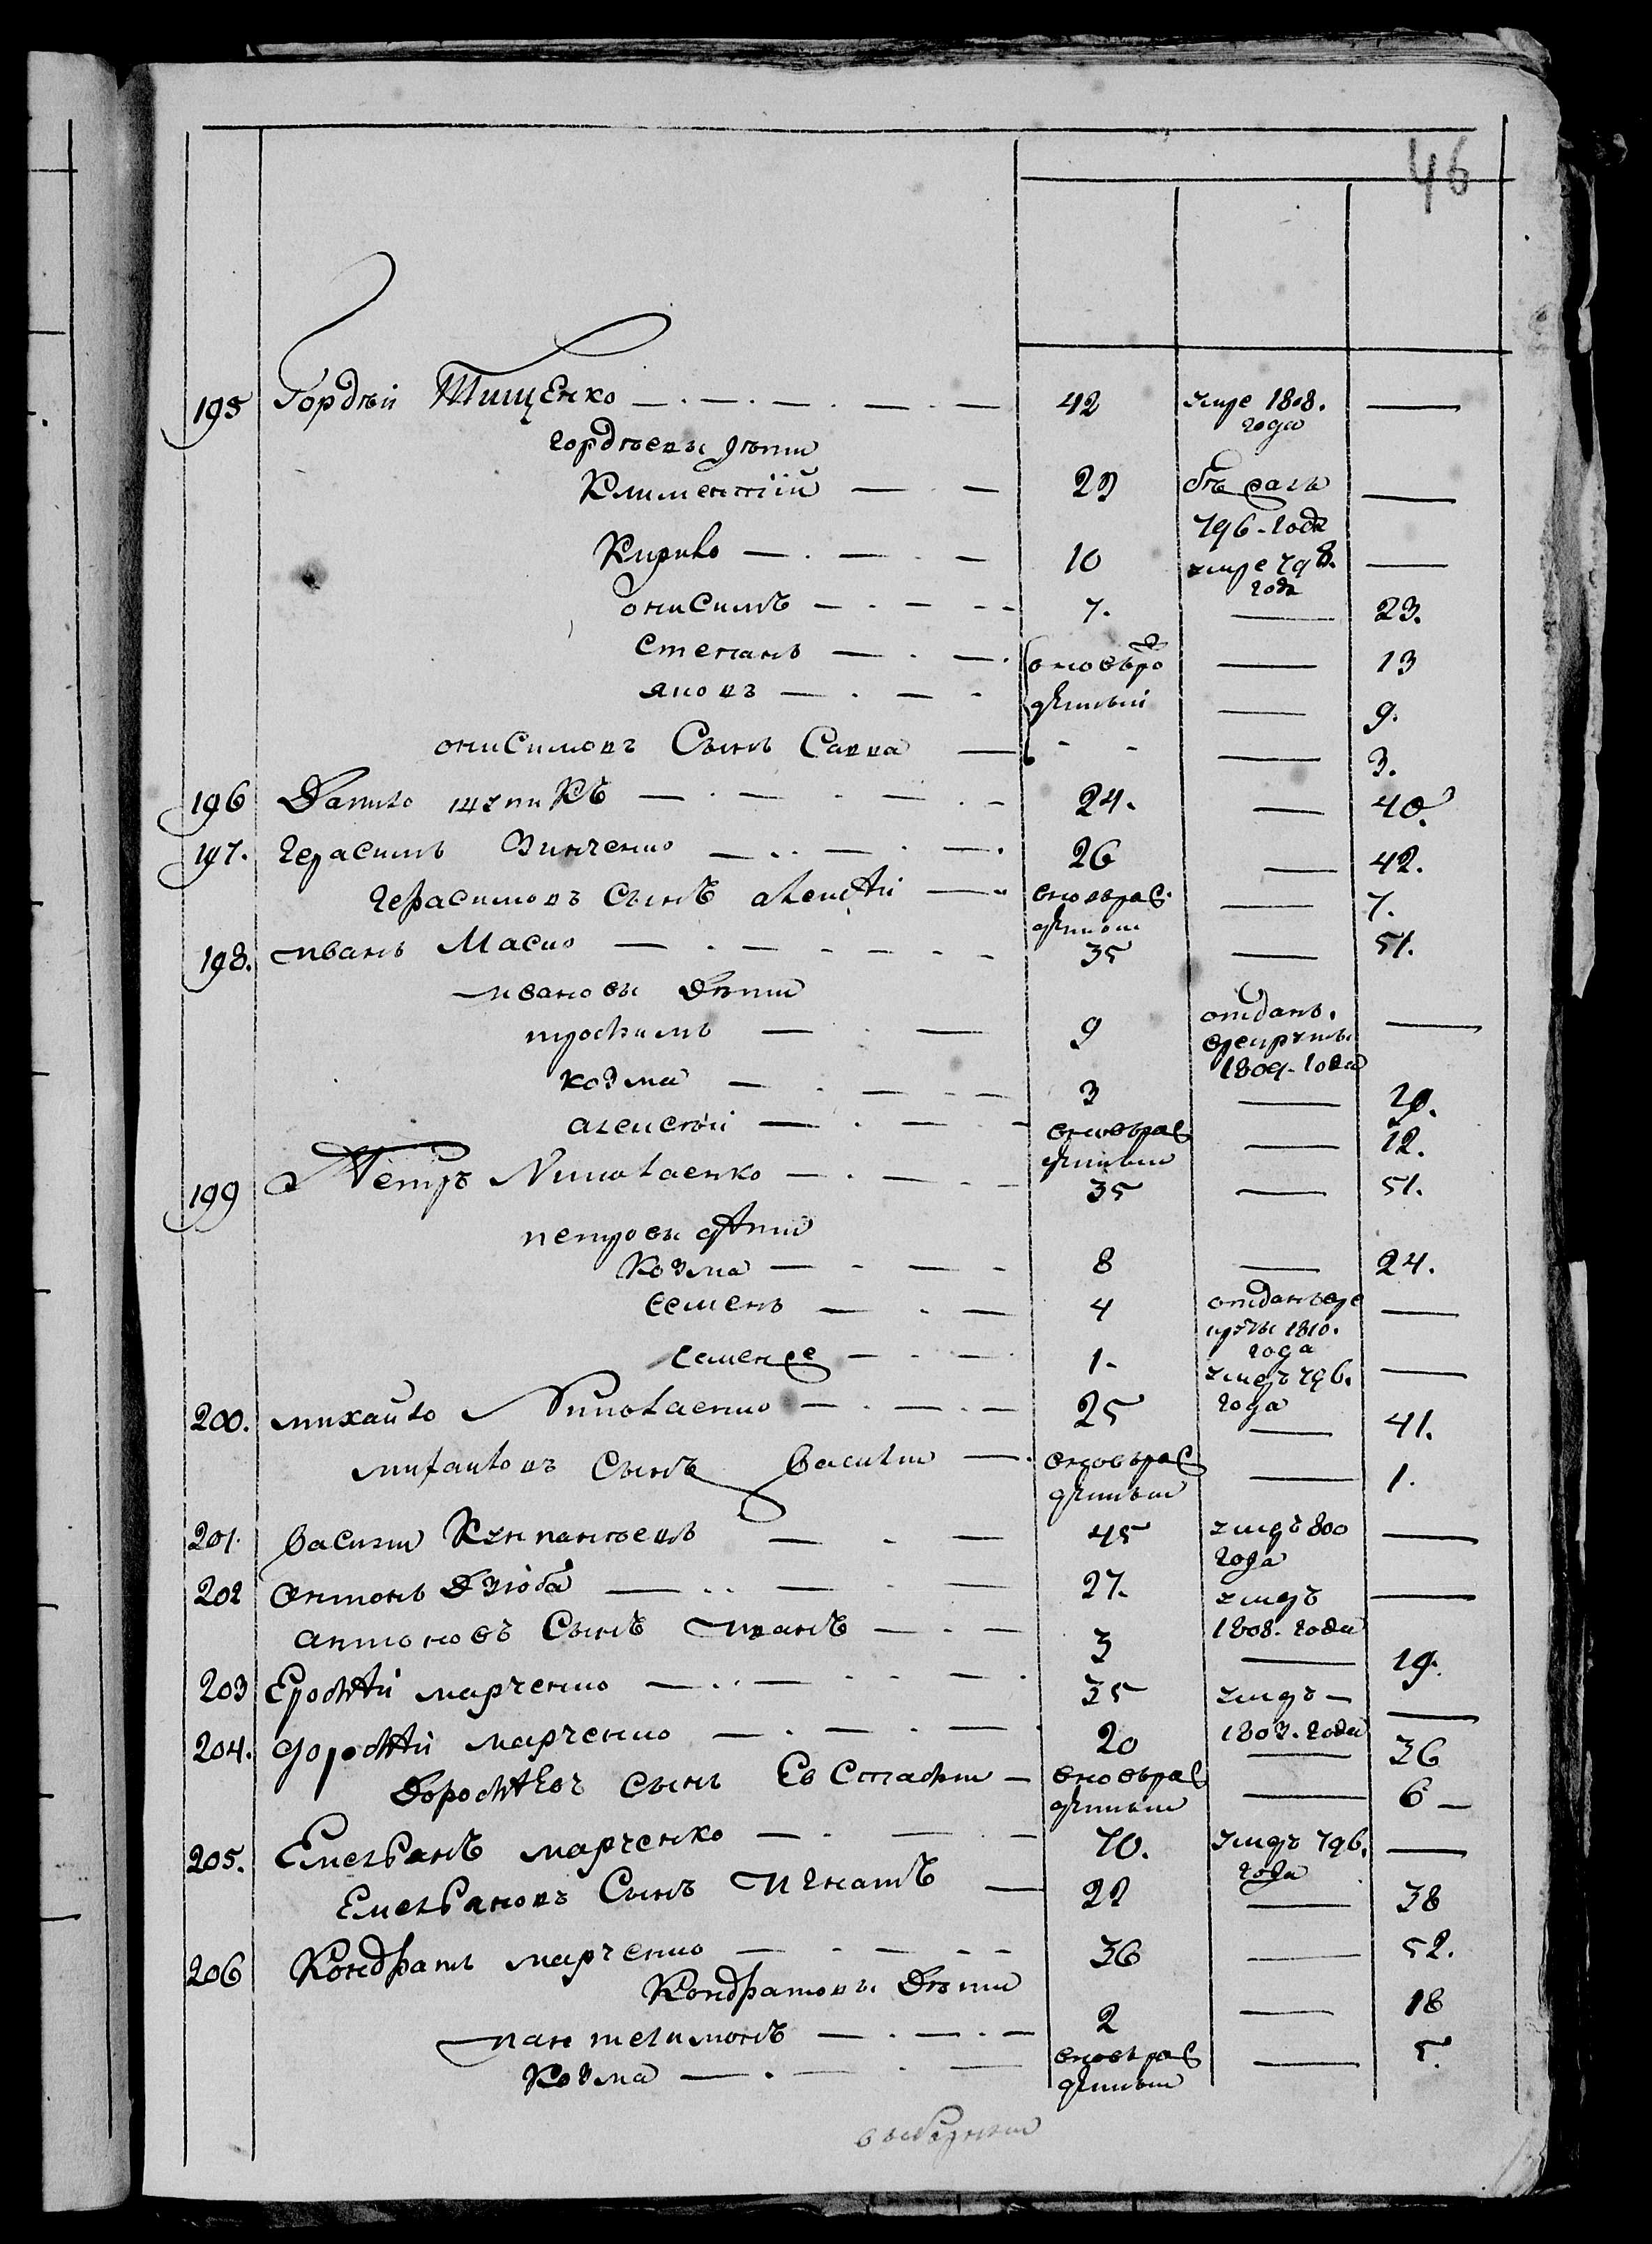 46
195 Гордѣи Тищенко 42 умре 1808.
года
гордѣевы дѣти
Климентiй 29 бѣжалъ
796-года
Кирило 10 умре 798.
года
онисимъ 7. 23.
степанъ 13
яковъ 9.
онисимовъ Сынъ Савва 3.
196 Данило 24. 40.
197. герасимъ Зинченко 26 42.
герасимовъ сынъ алексѣй новорож
денныи 7.
198. иванъ Масло 35 51.
ивановы Дѣти
трофимъ 9 отданъ.
врекруты
1809-года
козма 3 20.
алексѣи новорож
денныи 12.
199 Петръ Николаенко 35 51.
петровы дѣти
Козма 8 24.
семенъ 4 отданъ вре
круты 1810.
года
1. умеръ 796.
года
200. михайло Николаенко 25 41.
михайловъ Сынъ Василии новорож
денныи 1.
201. василии 45 умеръ 800
года
202 антонъ Дзюба 27. умеръ
1808. года
антоновъ Сынъ иванъ 3 19.
203 Ерофѣй марченко 35 умеръ
1807. года
204. дорофѣй марченко 20 36
Дорофѣевъ сынъ Евстафии новорож
денныи 6
205. Емельянъ марченко 70. умеръ 796.
года
Емельяновъ Сынъ игнатъ 22 38
206 Кондратъ марченко 36 52.
Кондратовы Дѣти
пантелимонъ 2 18
Козма новорож
денныи 5.